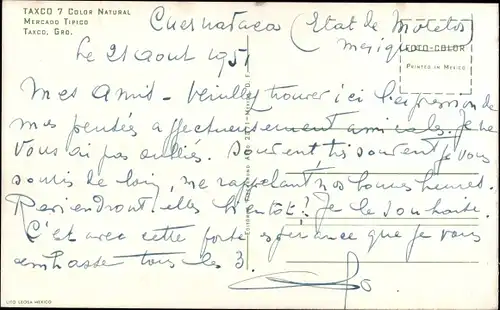 TAXCO 7 COLOR NATURAL
MERCADO TIPICO
TAXCO, GRO.
FOTO-COLOR
PRINTED IN MEXICO
Cuernavaca (Etat de Morelos)
Mexique
le 21 aout 1951
Mes Amis - Veuillez trouver ici l'expression de
mes pensées affectueusement amicales. Je ne
vous ai pas oubliés. Souvent, très souvent je vous
souris de loin, me rappelant nos bonnes heures.
Reviendront-elles bientôt? Je le souhaite.
C'est avec cette forte espérance que je vous
embrasse tous les 3.
LITO LEOSA-MEXICO